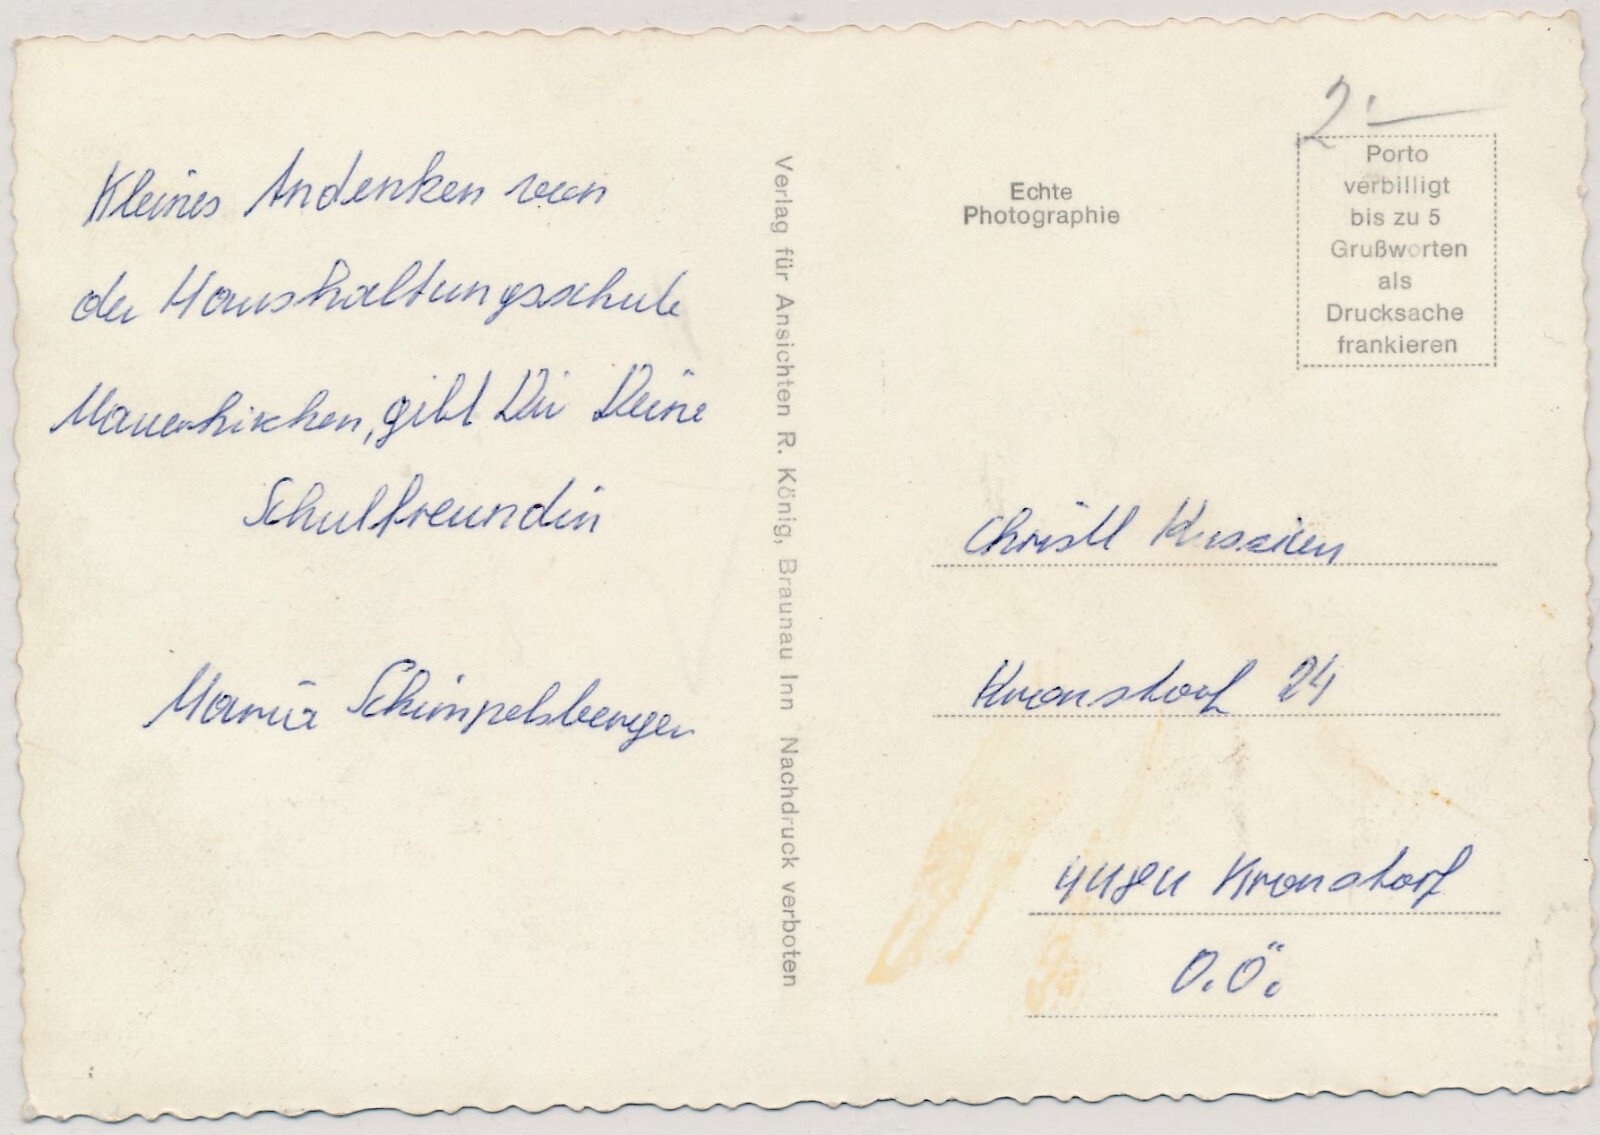 Kleines Andenken von
der Haushaltungsschule
Mauerkirchen, gibt Dir Deine
Schulfreundin
Maria Schimpelsberger
Verlag für Ansichten R. König, Braunau Inn Nachdruck verboten
Echte
Photographie
2.-
Porto
verbilligt
bis zu 5
Grußworten
als
Drucksache
frankieren
Christl
Kronstorf 24
4484 Kronstorf
O.Ö.